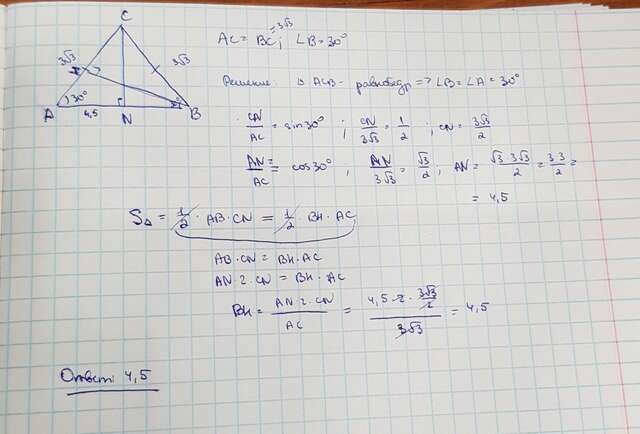 C
3√3 3√3
A 30° 4,5 N B
AC = BC = 3√3; ∠B = 30°
Решение. Δ ACB - равнобедр => ∠B = ∠A = 30°
CN/AC = sin 30° ; CN/3√3 = 1/2 ; CN = 3√3/2
AN/AC = cos 30° ; AN/3√3 = √3/2 ; AN = √3·3√3/2 = 3·3/2 =
= 4,5
S△ = 1/2 · AB · CN = 1/2 · BH · AC
AB · CN = BH · AC
AN · 2 · CN = BH · AC
BH = AN · 2 · CN/AC = 4,5 · 2 · 3√3/2/3√3 = 4,5
Ответ: 4,5